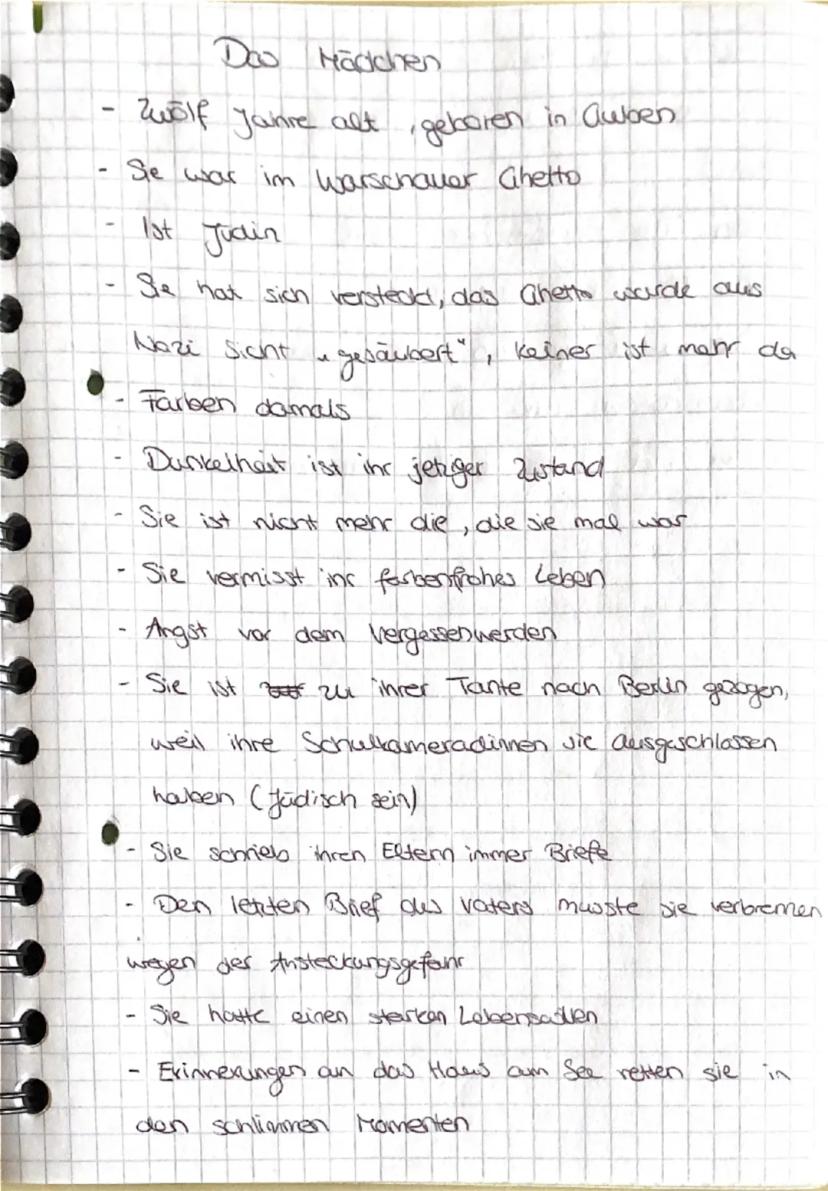 Das Mädchen
- Zwölf Jahre alt, geboren in Guben
- Sie war im Warschauer Ghetto
- Ist Jüdin
- Sie hat sich versteckt, das Ghetto wurde aus
Nazi Sicht „gesäubert", keiner ist mehr da
- Farben damals
- Dunkelheit ist ihr jetziger Zustand
- Sie ist nicht mehr die, die sie mal war
- Sie vermisst ihr farbenfrohes Leben
- Angst vor dem Vergessenwerden
- Sie ist zu ihrer Tante nach Berlin gezogen,
weil ihre Schulkameradinnen sie ausgeschlassen
haben (Jüdisch sein)
- Sie schrieb ihren Eltern immer Briefe
- Den letzten Brief des Vaters musste sie verbrennen
wegen der Ansteckungsgefahr
- Sie hatte einen starken
- Erinnerungen an das Haus am See retten sie in
den schlimmen Momenten